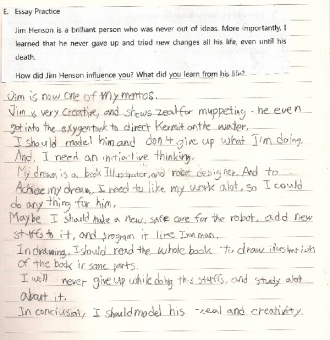 E. Essay Practice
Jim Henson is a brilliant person who was never out of ideas. More importantly, I
learned that he never gave up and tried new changes all his life, even until his
death.
How did Jim Henson influence you? What did you learn from his life?
Jim is now one of my mentos.
Jim is very creative, and shows zeal for muppeting - he even
got into the oxygen tank to direct Kermit on the water.
I should model him and don't give up what I'm doing.
And, I need an initiative thinking.
My dream is a book Illustrator, and robot designer. And to
Achieve my dream, I need to like my work alot, so I could
do any thing for him.
Maybe I should make a new, safe core for the robot, add new
stuffs to it, and program it like Iron man.
In drawing, I should read the whole book to draw illustrations
of the book in same parts.
I will never give up while doing this stuffs, and study alot
about it.
In conclusion, I should model his zeal and creativity.